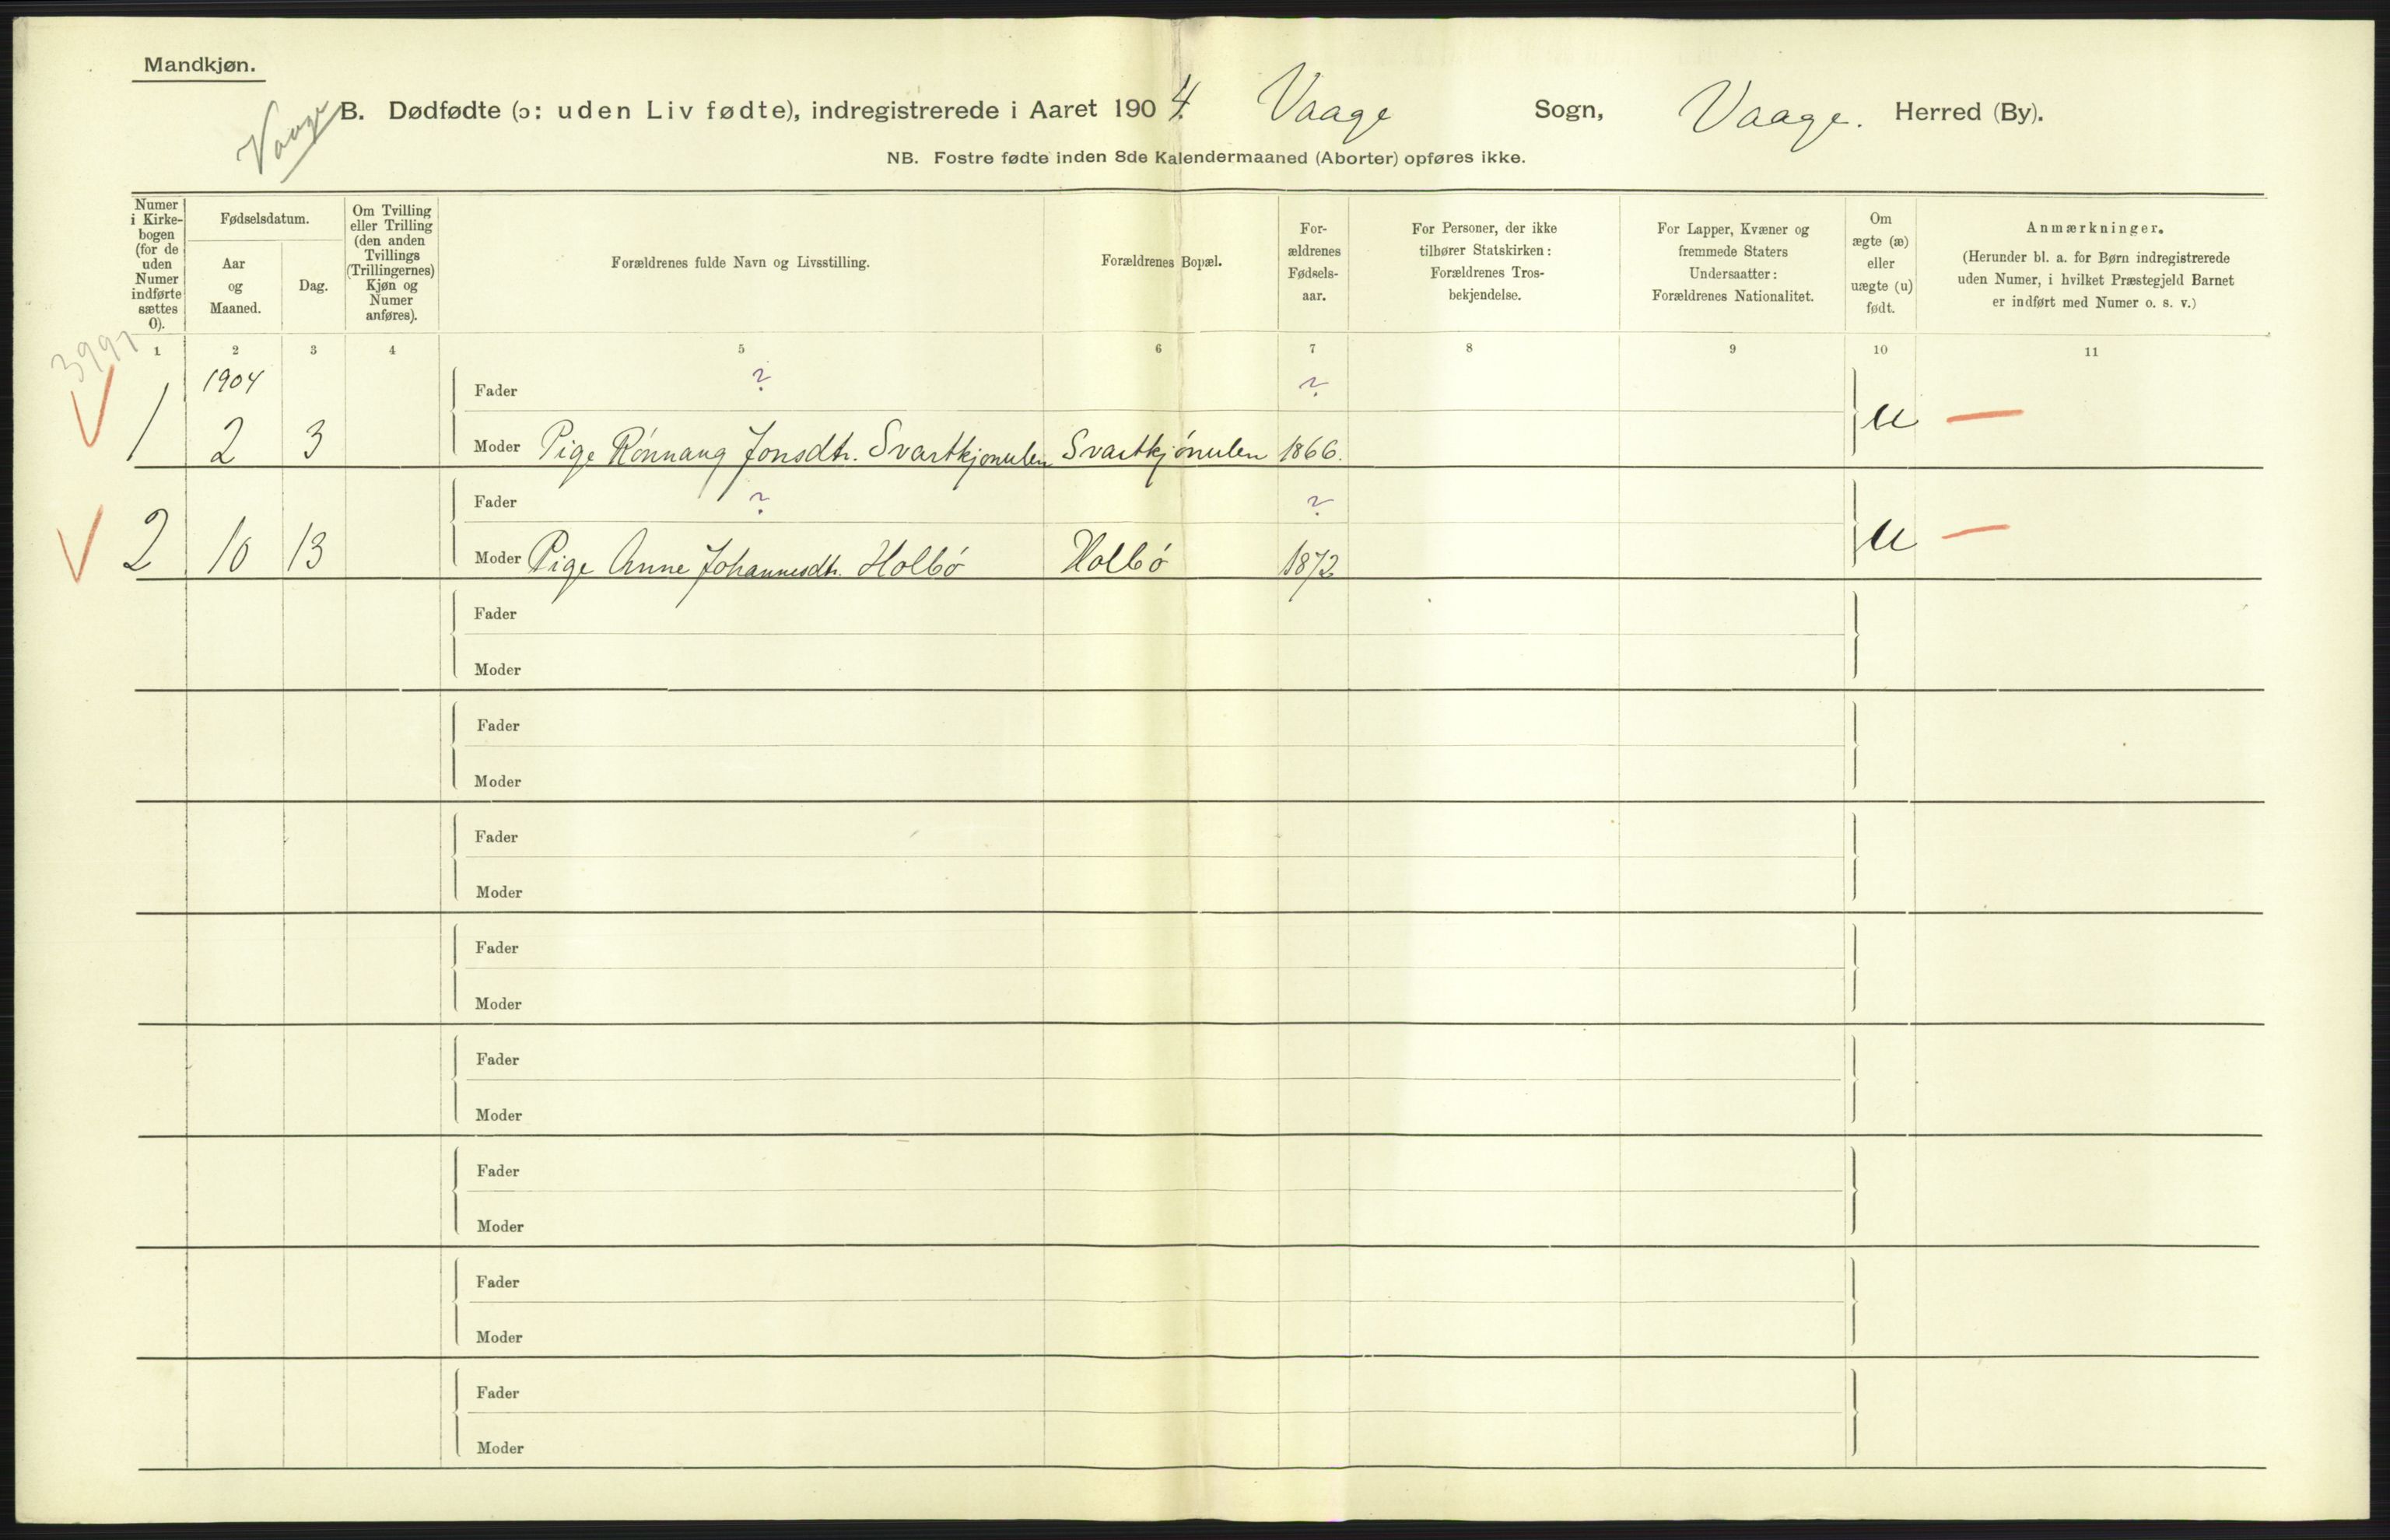 Mandkjøn.
Vaage
B. Dødfødte (ɔ: uden Liv fødte), indregistrerede i Aaret 1904. Vaage Sogn, Vaage. Herred (By).
NB. Fostre fødte inden 8de Kalendermaaned (Aborter) opføres ikke.
Numer
i Kirke-
bogen
(for de
uden
Numer
indførte
sættes
0).
Fødselsdatum.
Aar
og
Maaned.
Dag.
Om Tvilling
eller Trilling
(den anden
Tvillings
(Trillingernes)
Kjøn og
Numer
anføres).
Forældrenes fulde Navn og Livsstilling.
Forældrenes Bopæl.
For-
ældrenes
Fødsels-
aar.
For Personer, der ikke
tilhører Statskirken:
Forældrenes Tros-
bekjendelse.
For Lapper, Kvæner og
fremmede Staters
Undersaatter:
Forældrenes Nationalitet.
Om
ægte (æ)
eller
uægte (u)
født.
Anmærkninger.
(Herunder bl. a. for Børn indregistrerede
uden Numer, i hvilket Præstegjeld Barnet
er indført med Numer o. s. v.)
1 2 3 4 5 6 7 8 9 10 11
3991
1904 Fader ? ?
1 2 3 Moder Pige Rönnaug Jonsdtr. Svartkjønulen Svartkjønulen 1866. u —
Fader ? ?
2 10 13 Moder Pige Anne Johannesdtr. Holbö Holbö 1872 u —
Fader
Moder
Fader
Moder
Fader
Moder
Fader
Moder
Fader
Moder
Fader
Moder
Fader
Moder
Fader
Moder